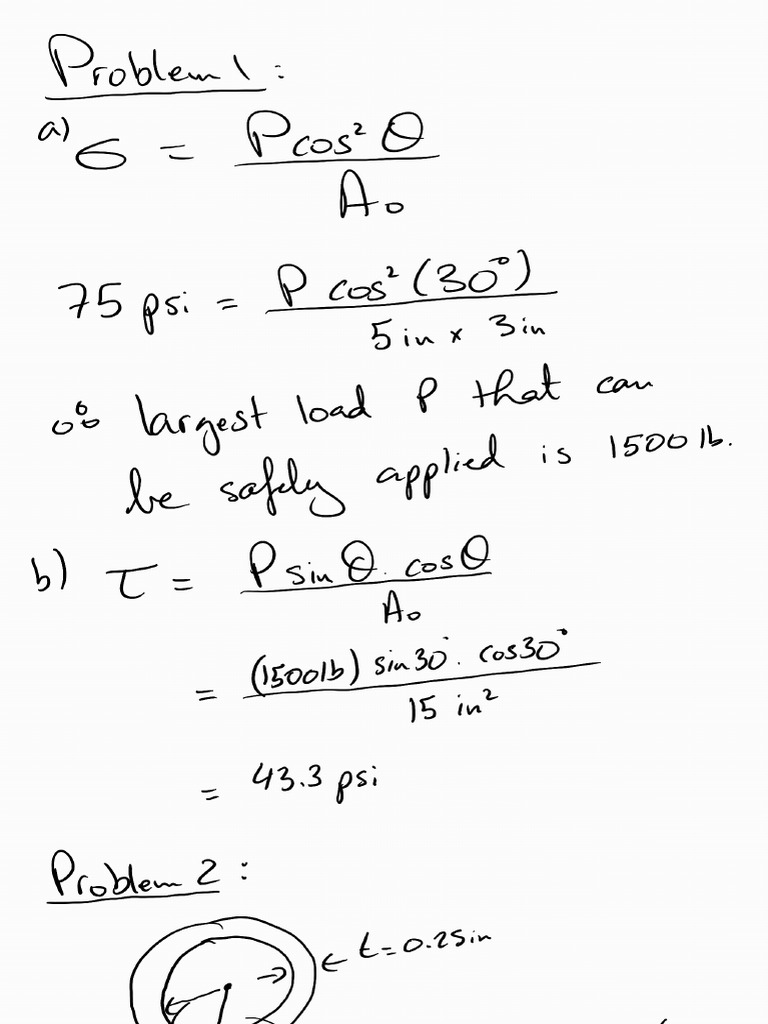 Problem 1:
a) σ = P cos² θ / A₀
75 psi = P cos² (30°) / 5 in x 3 in
∴ largest load P that can
be safely applied is 1500 lb.
b) τ = P sin θ · cos θ / A₀
= (1500 lb) sin 30° · cos 30° / 15 in²
= 43.3 psi
Problem 2:
← t = 0.25in